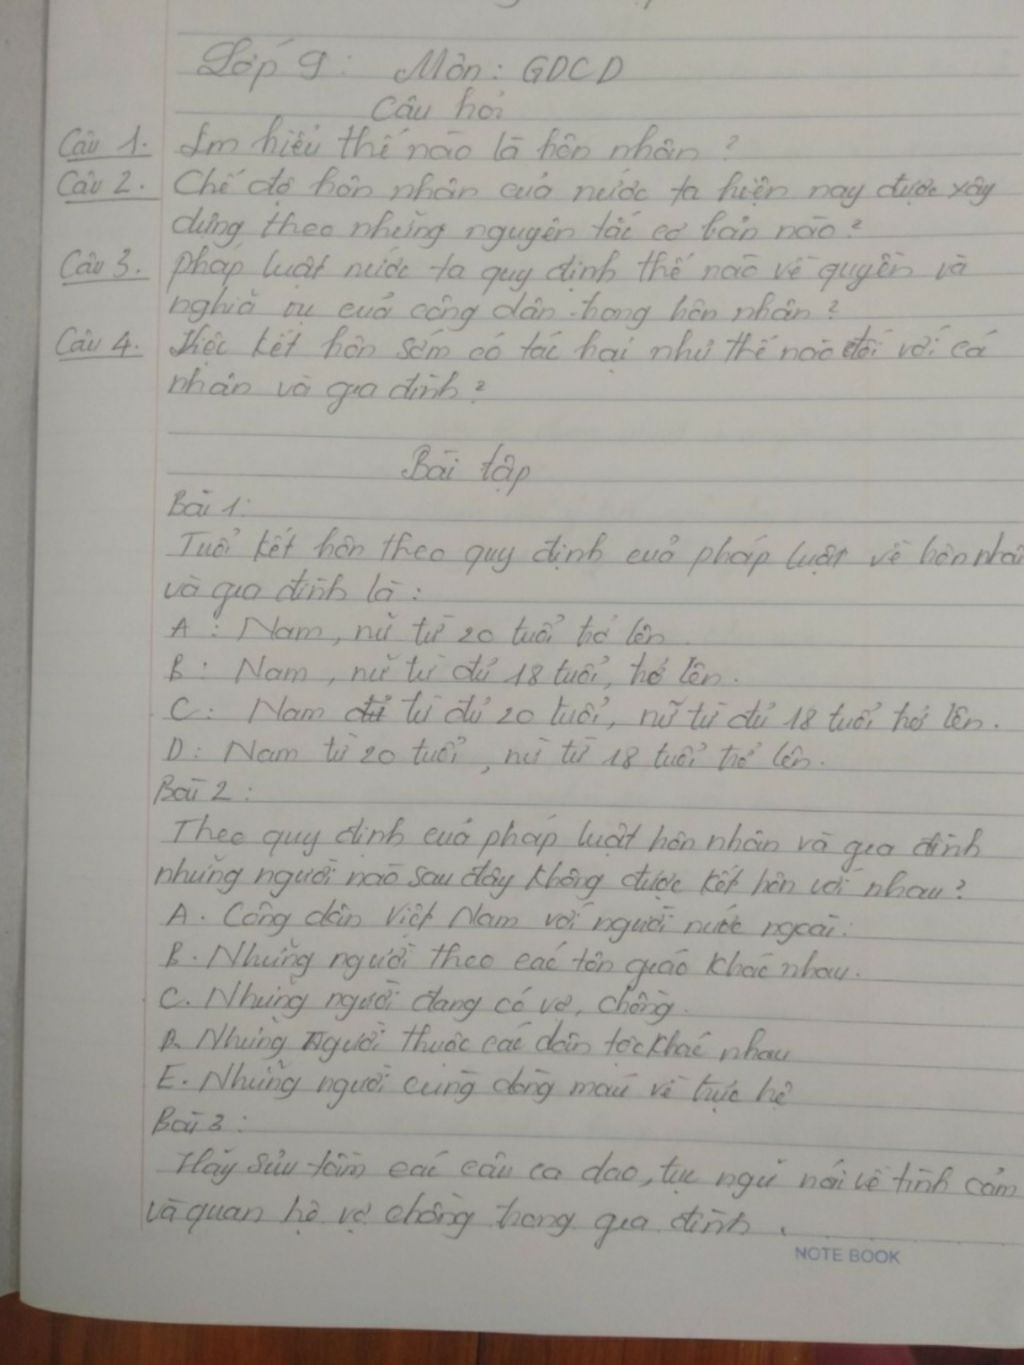 Lớp 9: Môn: GDCD
Câu hỏi
Câu 1. Em hiểu thế nào là hôn nhân?
Câu 2. Chế độ hôn nhân của nước ta hiện nay được xây
dựng theo những nguyên tắc cơ bản nào?
Câu 3. pháp luật nước ta quy định thế nào về quyền và
nghĩa vụ của công dân trong hôn nhân?
Câu 4. Việc kết hôn sớm có tác hại như thế nào đối với cá
nhân và gia đình?
Bài tập
Bài 1:
Tuổi kết hôn theo quy định của pháp luật về hôn nhân
và gia đình là:
A: Nam, nữ từ 20 tuổi trở lên
B: Nam, nữ từ đủ 18 tuổi, trở lên.
C: Nam từ đủ 20 tuổi, nữ từ đủ 18 tuổi trở lên.
D: Nam từ 20 tuổi, nữ từ 18 tuổi trở lên.
Bài 2:
Theo quy định của pháp luật hôn nhân và gia đình
những người nào sau đây không được kết hôn với nhau?
A. Công dân Việt Nam với người nước ngoài.
B. Những người theo các tôn giáo khác nhau.
C. Những người đang có vợ, chồng.
D. Những người thuộc các dân tộc khác nhau
E. Những người cùng dòng máu về trực hệ
Bài 3:
Hãy sưu tầm các câu ca dao, tục ngữ nói về tình cảm
và quan hệ vợ chồng trong gia đình.
NOTE BOOK